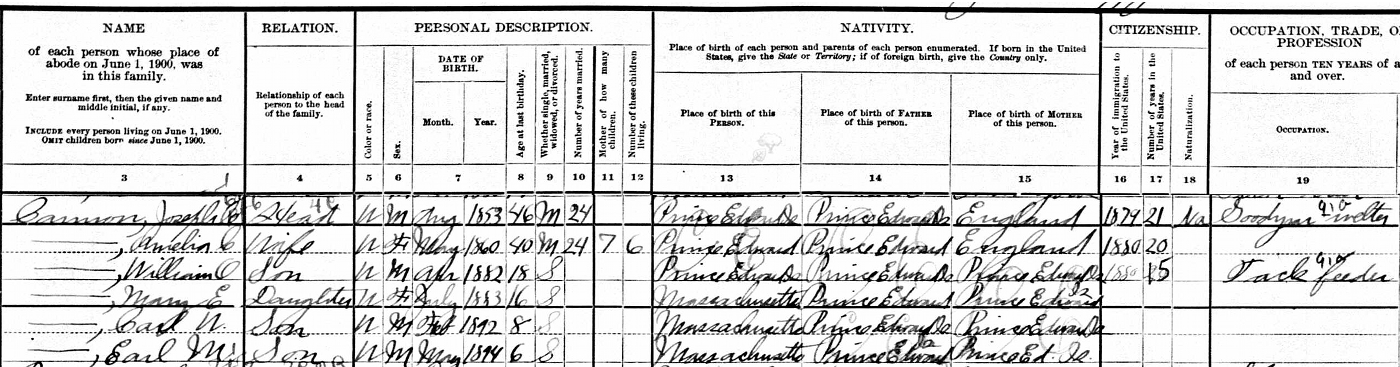 NAME
of each person whose place of
abode on June 1, 1900, was
in this family.
Enter surname first, then the given name and
middle initial, if any.
INCLUDE every person living on June 1, 1900.
OMIT children born since June 1, 1900.
RELATION.
Relationship of each
person to the head
of the family.
PERSONAL DESCRIPTION.
Color or race.
Sex.
DATE OF
BIRTH.
Month.
Year.
Age at last birthday.
Whether single, married,
widowed, or divorced.
Number of years married.
Mother of how many
children.
Number of these children
living.
NATIVITY.
Place of birth of each person and parents of each person enumerated. If born in the United
States, give the State or Territory; if of foreign birth, give the Country only.
Place of birth of this
PERSON.
Place of birth of FATHER
of this person.
Place of birth of MOTHER
of this person.
CITIZENSHIP.
Year of immigration to
the United States.
Number of years in the
United States.
Naturalization.
OCCUPATION, TRADE, O
PROFESSION
of each person TEN YEARS of a
and over.
OCCUPATION.
3 4 5 6 7 8 9 10 11 12 13 14 15 16 17 18 19
Cannon, Joseph Head W M Aug 1853 46 M 24 Prince Edward Is Prince Edward Is England 1879 21 Na Goodyear welter
—, Amelia C Wife W F May 1860 40 M 24 7 6 Prince Edward Prince Edward England 1880 20
—, William O Son W M Apr 1882 18 S Prince Edward Is Prince Edward Is Prince Edward Is 15 Tack feeder
—, Mary E Daughter W F July 1883 16 S Massachusetts Prince Edward Prince Edward Is
—, Carl N. Son W M Feb 1892 8 S Massachusetts Prince Edward Is Prince Edward Is
—, Earl M. Son W M May 1894 6 S Massachusetts Prince Edward Is Prince Ed. Is.